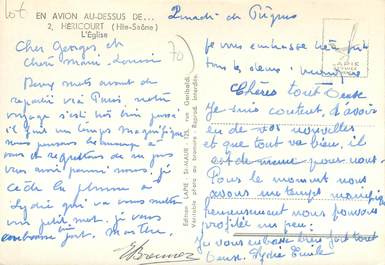 Lot
EN AVION AU-DESSUS DE...
2, HÉRICOURT (Hte-Saône)
L'Église
Lundi de Pâques
70
Cher Georges, et
chère Marie-Louise
Deux mots avant de
repartir via Paris, notre
voyage s'est très bien passé
il fait un temps magnifique
nous pensons beaucoup à
vous et regrettons de ne pas
vous avoir parmi nous. je
cède la plume à
Lydie qui va vous mettre
un petit mot. je vous
embrasse fort. Marthe.
Edition LAPIE St-MAUR - 125, rue Garibaldi
Véritable photo au bromure - Reprod. interdite
LAPIE
je vous embrasse bien fort
tous les deux.
Chères tout Deux
Je suis content, d'avoir
eu de vos nouvelles
et que tout va bien, il
est de même pour nous.
Pour le moment nous
avons un temps magnifique
heureusement nous pouvons
profité un peu.
Je vous embrasse bien fort tout
Deux. Lydie Emile